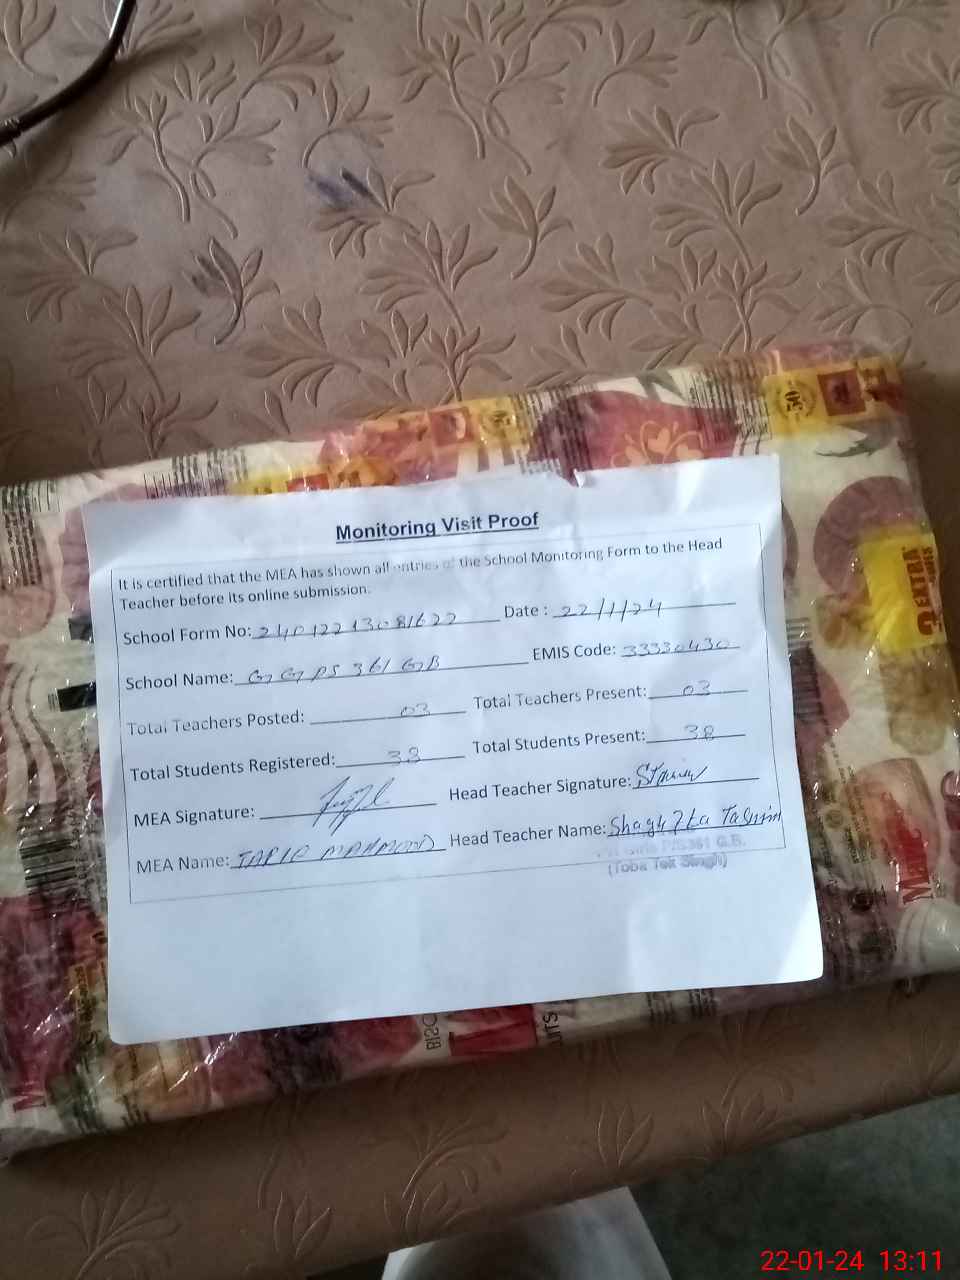 Monitoring Visit Proof
It is certified that the MEA has shown all entries of the School Monitoring Form to the Head
Teacher before its online submission.
School Form No: 24012213081622 Date : 22/1/24
School Name: GGPS 361 GB EMIS Code: 33330430
Total Teachers Posted: 03 Total Teachers Present: 03
Total Students Registered: 38 Total Students Present: 38
MEA Signature: Head Teacher Signature:
MEA Name: TARIQ MAHMOOD Head Teacher Name: Shagufta Tasnim
Girls P/S361 G.B.
(Toba Tek Singh)
50
EXTRA
22-01-24 13:11